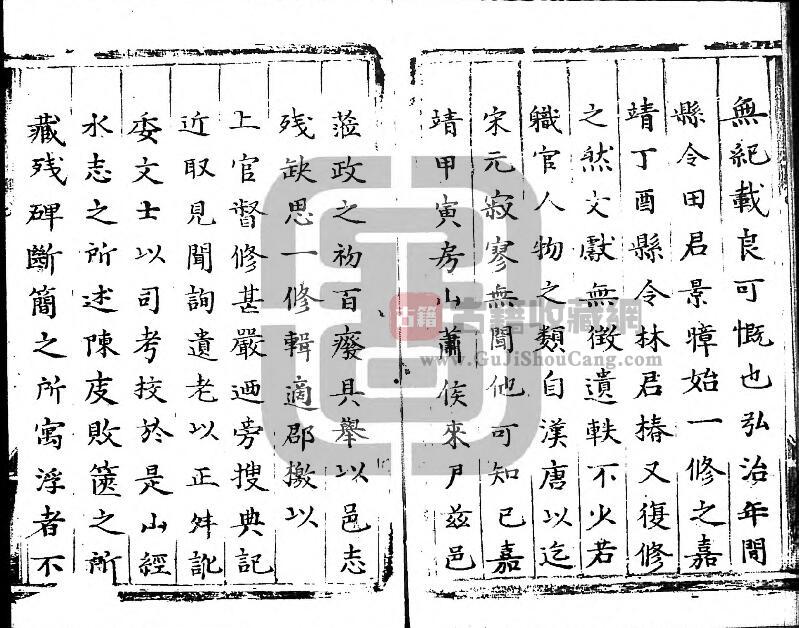 無紀載良可慨也弘治年間
縣令田君景暲始一修之嘉
靖丁酉縣令林君椿又復修
之然文獻無徵遺軼不少若
職官人物之類自漢唐以迄
宋元寂寥無聞他可知已嘉
靖甲寅房山蕭侯來尹茲邑
蒞政之初百廢具舉以邑志
残缺思一修輯適郡檄以
上官督修甚嚴迺旁搜典記
近取見聞詢遺老以正舛訛
委文士以司考挍於是山經
水志之所述陳庋敗篋之所
藏残碑斷簡之所寓浮者不
古籍
古籍收藏網
www.GuJiShouCang.com